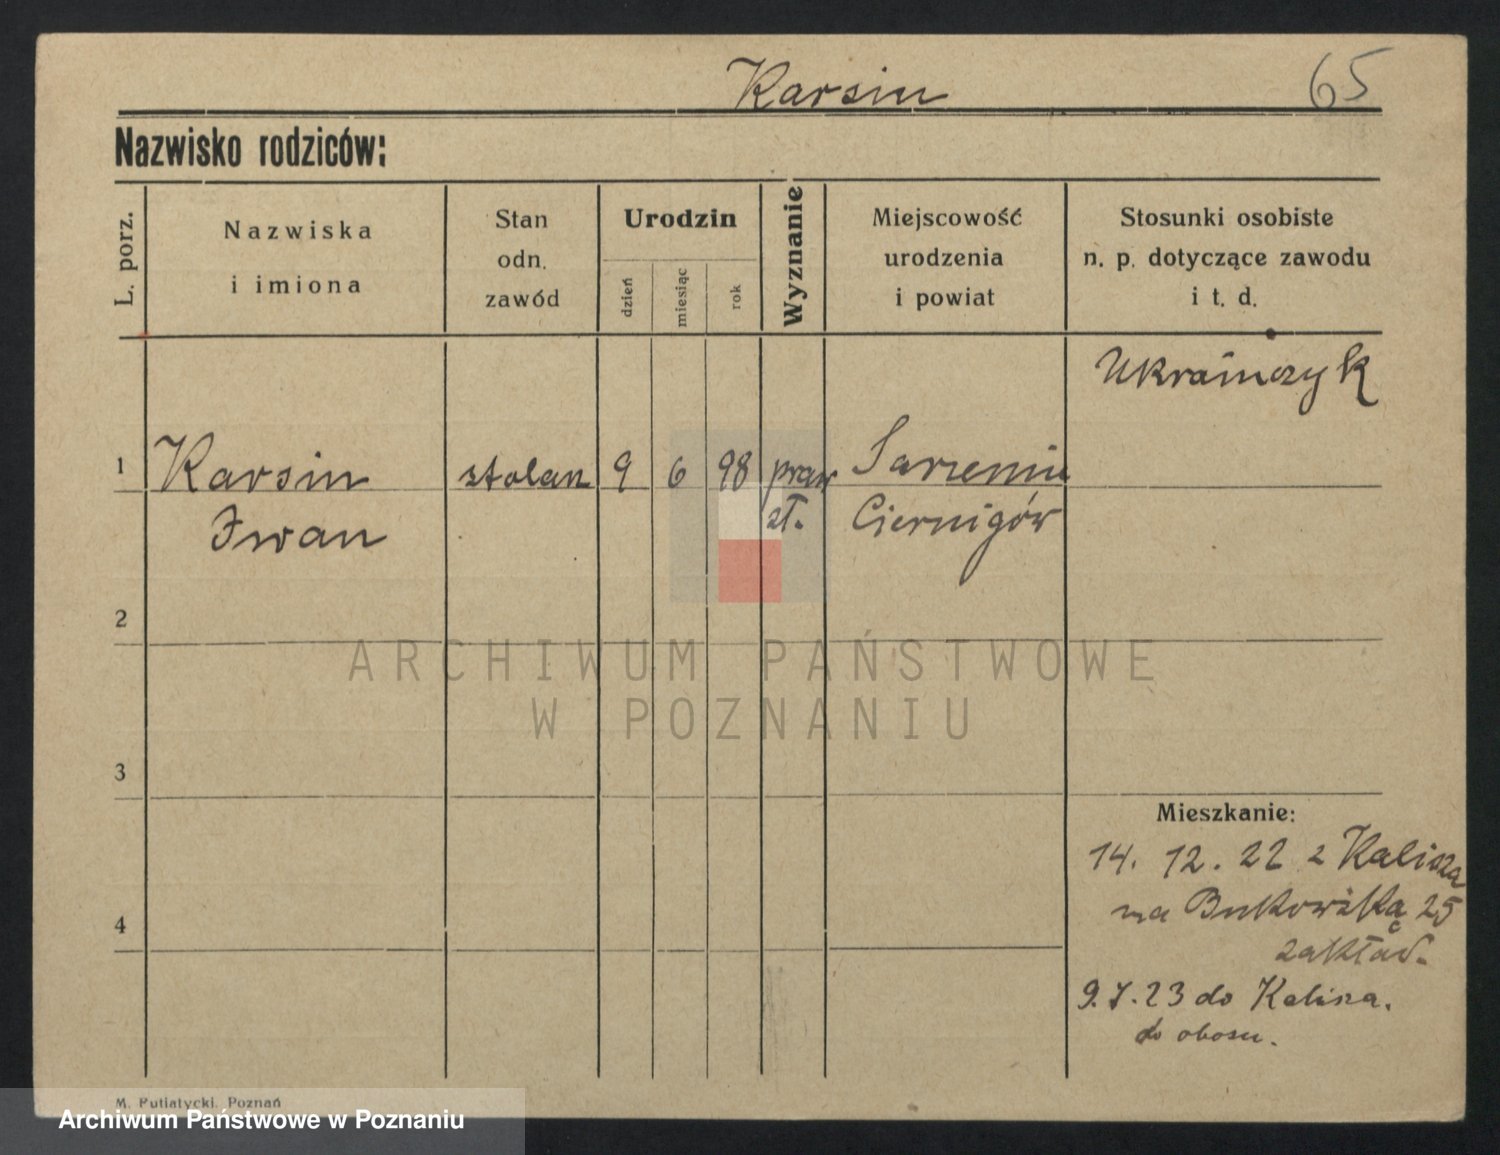 Karsin 65
Nazwisko rodziców:
L. porz.
Nazwiska
i imiona
Stan
odn.
zawód
Urodzin
dzień
miesiąc
rok
Wyznanie
Miejscowość
urodzenia
i powiat
Stosunki osobiste
n. p. dotyczące zawodu
i t. d.
Ukraińczyk
1 Karsin stolarz 9 6 98 praw
Iwan zł. Ciernigów
2
3
4
Mieszkanie:
14. 12. 22 z Kalisza
na Bukowską 25
zakład.
9.7.23 do Kalisza.
do obozu.
ARCHIWUM PAŃSTWOWE
W POZNANIU
M. Putiatycki, Poznań
Archiwum Państwowe w Poznaniu